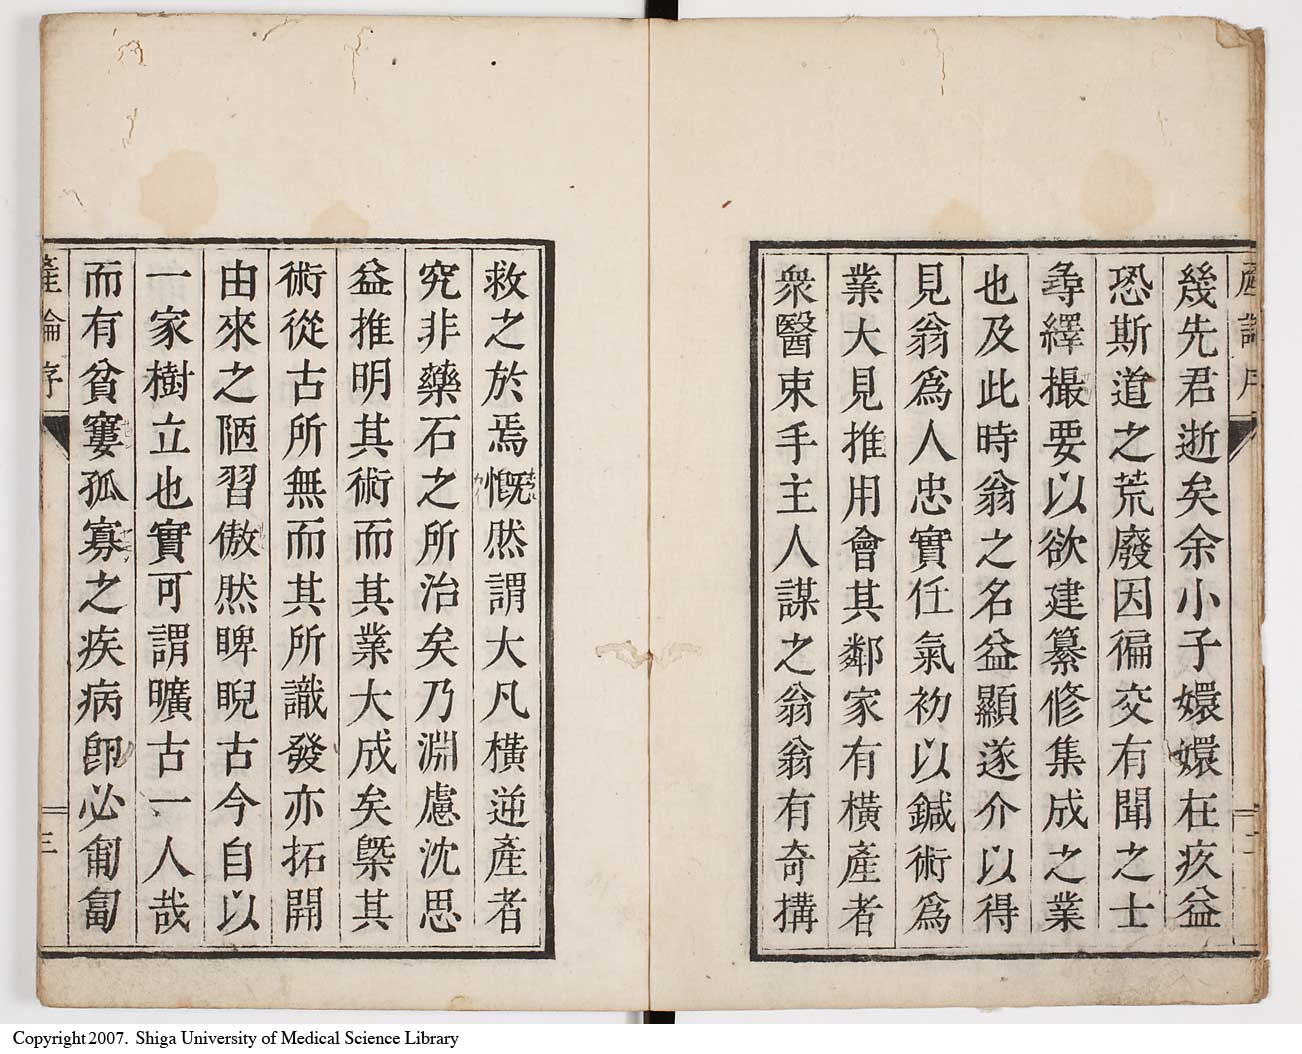 幾先君逝矣余小子嬛嬛在疚益
恐斯道之荒廢因徧交有聞之士
尋繹撮要以欲建纂修集成之業
也及此時翁之名益顯遂介以得
見翁爲人忠實任氣初以鍼術爲
業大見推用會其鄰家有橫產者
衆醫束手主人謀之翁翁有奇搆
救之於焉慨然謂大凡橫逆產者
究非藥石之所治矣乃淵慮沈思
益推明其術而其業大成矣槩其
術從古所無而其所識發亦拓開
由來之陋習傲然睥睨古今自以
一家樹立也實可謂曠古一人哉
而有貧窶孤寡之疾病卽必匍匐
產論序
三
Copyright 2007. Shiga University of Medical Science Library